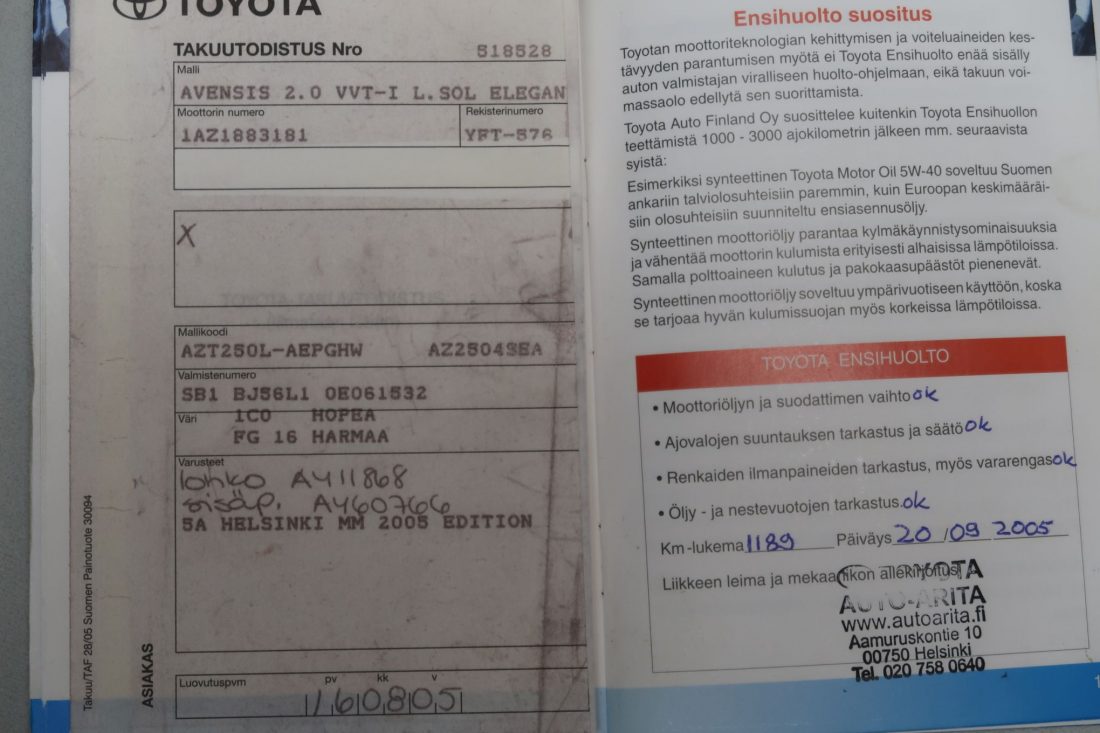 TOYOTA
TAKUUTODISTUS Nro 518528
Malli
AVENSIS 2.0 VVT-I L.SOL ELEGAN
Moottorin numero
1AZ1883181
Rekisterinumero
YFT-576
X
Mallikoodi
AZT250L-AEPGHW AZ2504SEA
Valmistenumero
SB1 BJ56L1 0E061532
Väri 1C0 HOPEA
FG 16 HARMAA
Varusteet
lohko AY411868
sisäp. AY60766
5A HELSINKI MM 2005 EDITION
Luovutuspvm
pv kk v
160805
ASIAKAS
Takuu/TAF 28/05 Suomen Painotuote 30094
Ensihuolto suositus
Toyotan moottoriteknologian kehittymisen ja voiteluaineiden kes-
tävyyden parantumisen myötä ei Toyota Ensihuolto enää sisälly
auton valmistajan viralliseen huolto-ohjelmaan, eikä takuun voi-
massaolo edellytä sen suorittamista.
Toyota Auto Finland Oy suosittelee kuitenkin Toyota Ensihuollon
teettämistä 1000 - 3000 ajokilometrin jälkeen mm. seuraavista
syistä:
Esimerkiksi synteettinen Toyota Motor Oil 5W-40 soveltuu Suomen
ankariin talviolosuhteisiin paremmin, kuin Euroopan keskimääräi-
siin olosuhteisiin suunniteltu ensiasennusöljy.
Synteettinen moottoriöljy parantaa kylmäkäynnistysominaisuuksia
ja vähentää moottorin kulumista erityisesti alhaisissa lämpötiloissa.
Samalla polttoaineen kulutus ja pakokaasupäästöt pienenevät.
Synteettinen moottoriöljy soveltuu ympärivuotiseen käyttöön, koska
se tarjoaa hyvän kulumissuojan myös korkeissa lämpötiloissa.
TOYOTA ENSIHUOLTO
• Moottoriöljyn ja suodattimen vaihto ok
• Ajovalojen suuntauksen tarkastus ja säätö ok
• Renkaiden ilmanpaineiden tarkastus, myös vararengas ok
• Öljy - ja nestevuotojen tarkastus. ok
Km-lukema 1189 Päiväys 20 /09 2005
Liikkeen leima ja mekaanikon allekirjoitus
TOYOTA
AUTO-ARITA
www.autoarita.fi
Aamuruskontie 10
00750 Helsinki
Tel. 020 758 0640